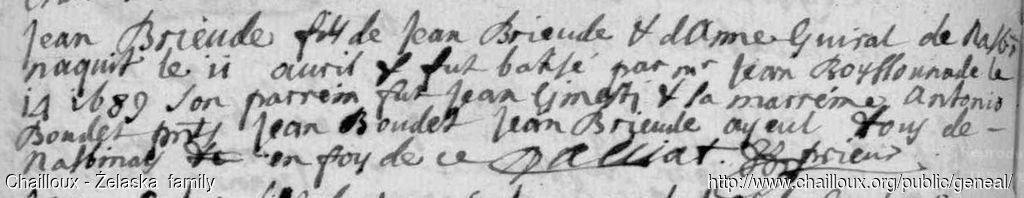 Jean Brieude fils de Jean Brieude & d'Anne Guiral de Nasbi
naquit le 11 avril & fut batisé par mr Jean Boyssounade le
14 1689 Son parrein fut Jean & la marréme Antonio
Boudet pnts Jean Boudet Jean Brieude ayeul tous de -
Nasbinas en foy de ce Palliat. prieur
Chailloux - Żelaska family
http://www.chailloux.org/public/geneal/